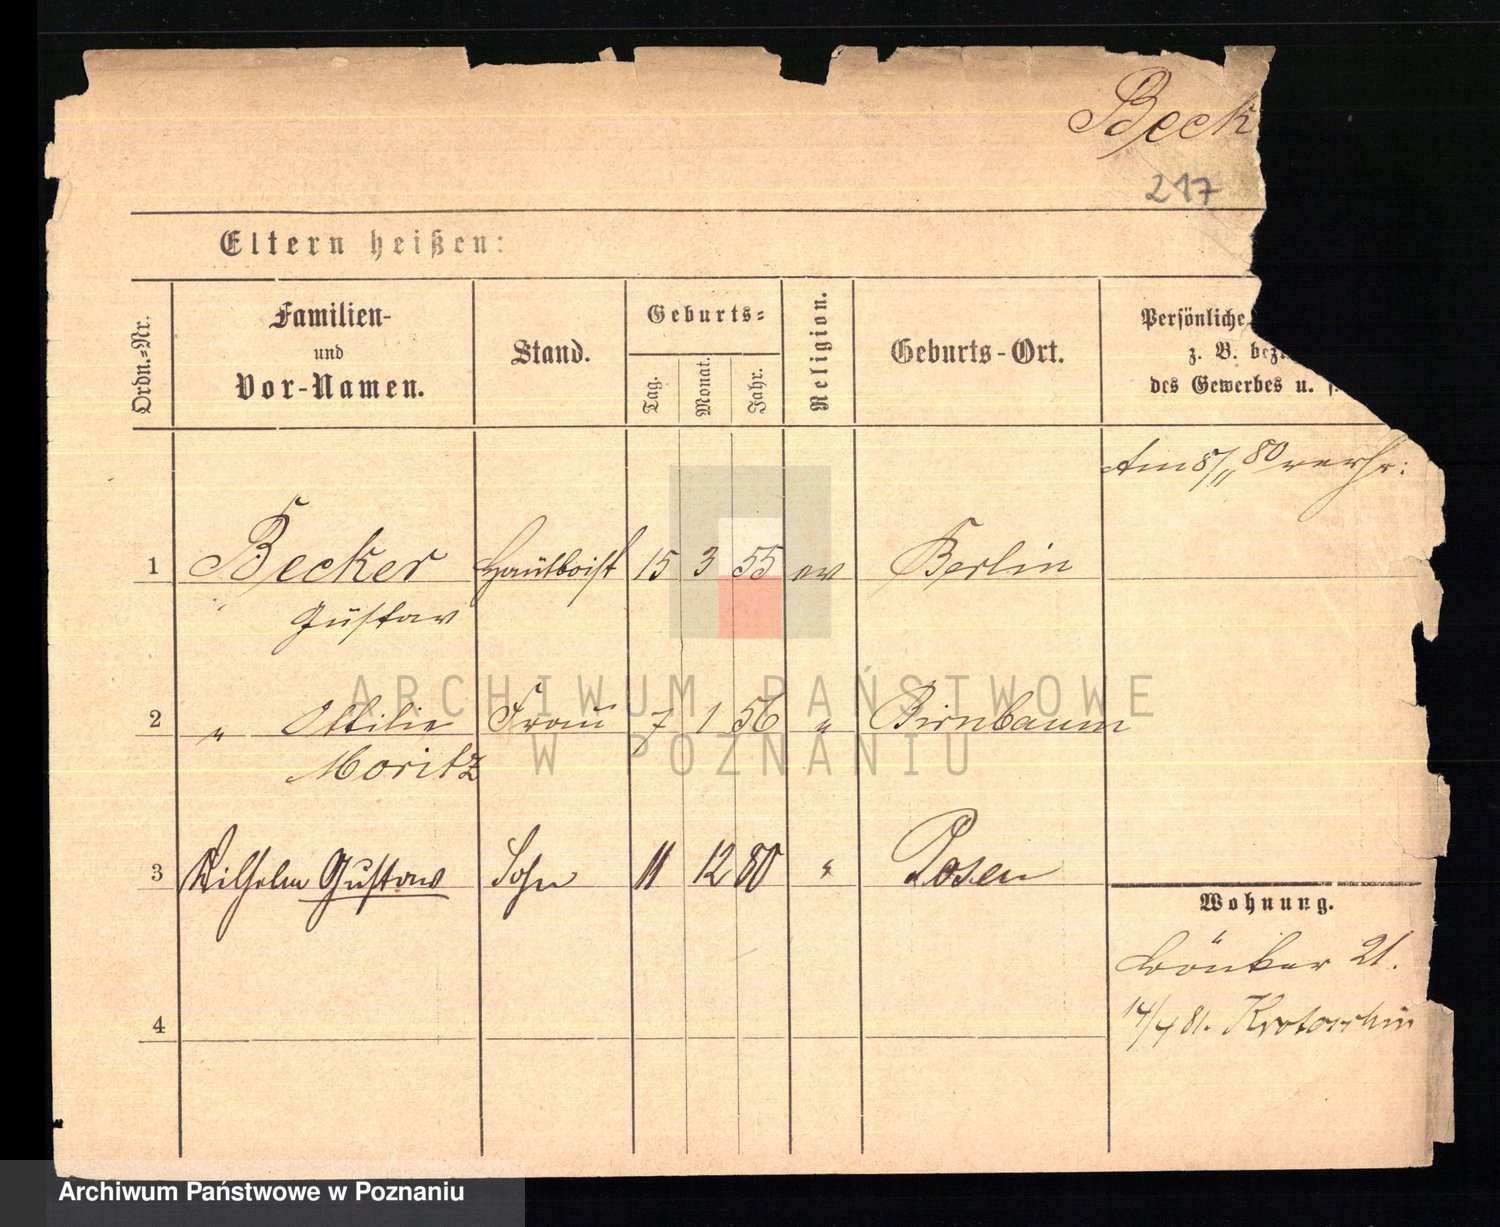 Beck
217
Eltern heißen:
Ordn.-Nr.
Familien-
und
Vor-Namen.
Stand.
Geburts-
Tag.
Monat.
Jahr.
Religion.
Geburts-Ort.
Persönliche
z. B. bez
des Gewerbes u. s.
Am 8/11 80 verh:
1 Becker Hautboist 15 3 55 ev Berlin
Gustav
2 " Ottilie Frau 7 1 56 " Birnbaum
Moritz
3 Wilhelm Gustav Sohn 11 12 80 " Posen
Wohnung.
21.
4
14/4 81. Krotoschin
ARCHIWUM PAŃSTWOWE
W POZNANIU
Archiwum Państwowe w Poznaniu